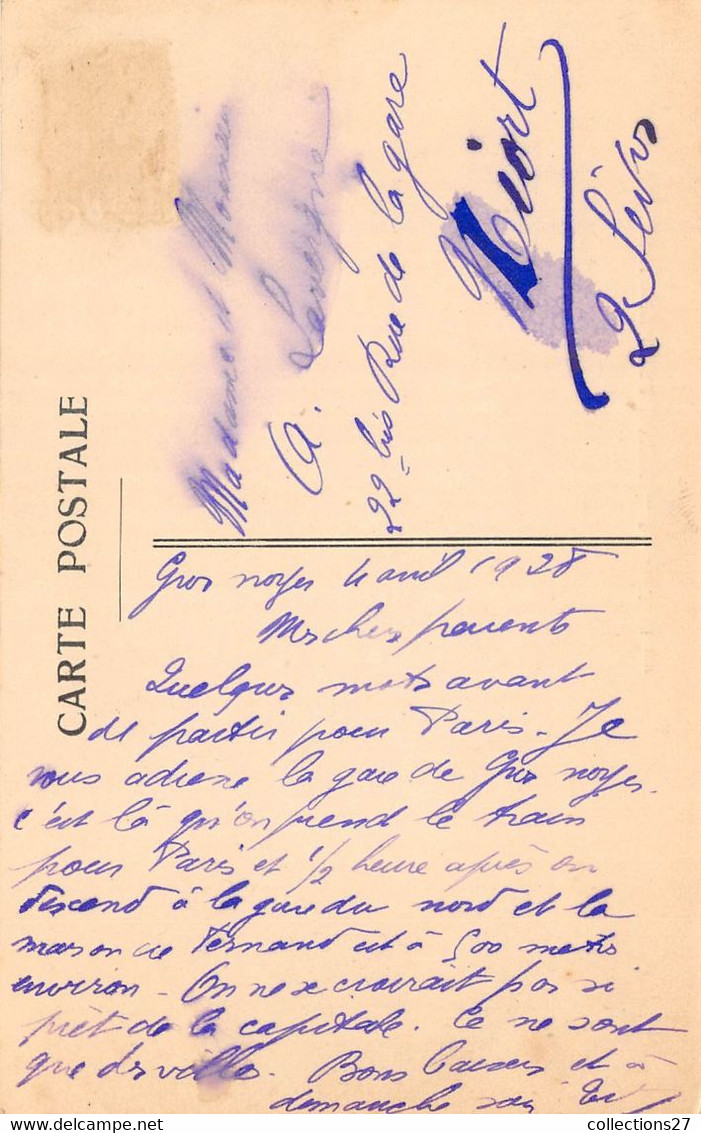 CARTE POSTALE
Madame et Monsieur
A. Lavergne
22 bis Rue de la gare
Niort
2 Sèvres
Gros noyer 4 avril 1928
Mes chers parents
Quelques mots avant
de partir pour Paris - Je
vous adresse la gare de Gros noyer.
c'est là qu'on prend le train
pour Paris et 1/2 heure après on
descend à la gare du nord et la
maison de Fernand est à 500 mètres
environ - On ne se croirait pas si
prèt de la capitale. Ce ne sont
que des villas. Bons baisers et à
demanche soir
collections27